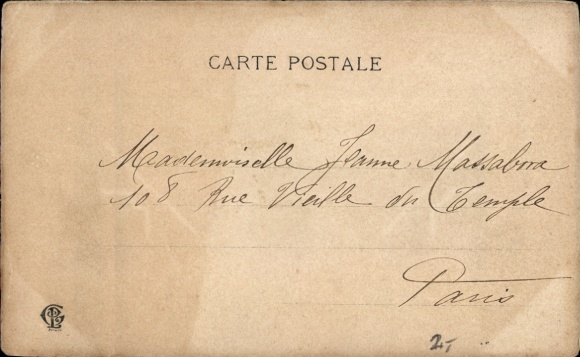 CARTE POSTALE
Mademoiselle Jeanne Massabora
108 Rue Vieille du Temple
Paris
2,-